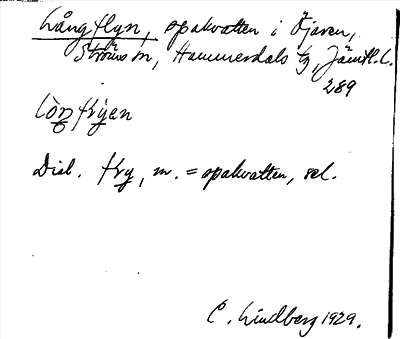 Långflyn, spakvatten i Öjaren,
Ströms sn, Hammerdals tg, Jämtl. l.
289
Dial. fry, m. = spakvatten, sel.
C. Lindberg 1929.